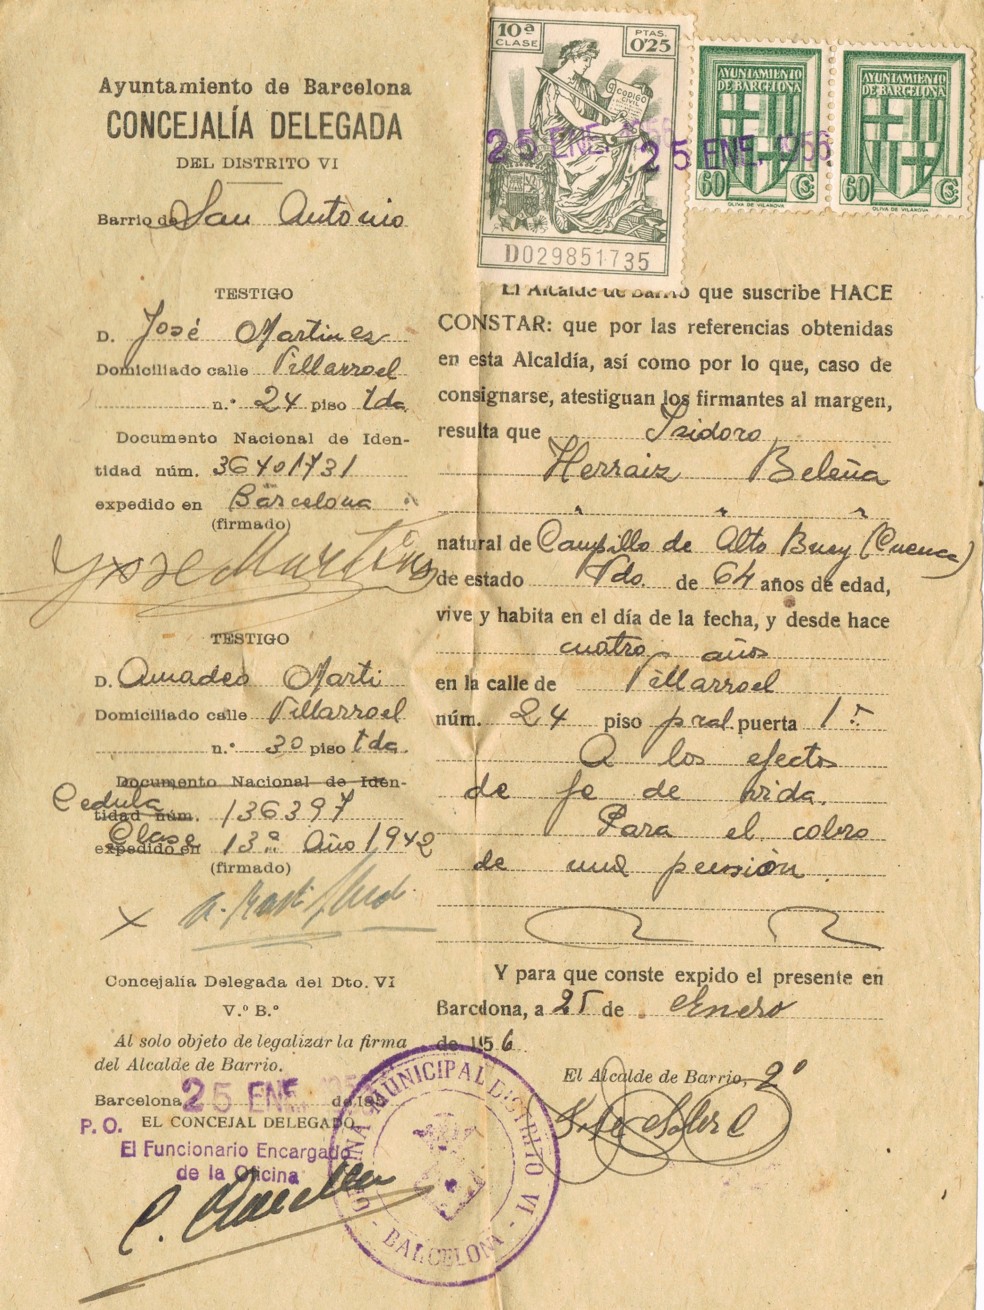 Ayuntamiento de Barcelona
CONCEJALÍA DELEGADA
DEL DISTRITO VI
Barrio de San Antonio
10ª CLASE
PTAS. 0'25
CODIGO CIVIL
D029851735
AYUNTAMIENTO DE BARCELONA
60 Cs:
OLIVA DE VILANOVA
AYUNTAMIENTO DE BARCELONA
60 Cs:
OLIVA DE VILANOVA
25 ENE. 1956
25 ENE. 1956
TESTIGO
D. José Martines
Domiciliado calle Villarroel
n.º 24 piso tda
Documento Nacional de Iden-
tidad núm. 36401731
expedido en Barcelona
(firmado)
Jose Martines
TESTIGO
D. Amadeo Marti
Domiciliado calle Villarroel
n.º 30 piso tda.
Documento Nacional de Iden-
Cedula tidad núm. 136397
Clase expedido en 13ª Año 1942
(firmado)
Concejalía Delegada del Dto. VI
V.º B.º
Al solo objeto de legalizar la firma
del Alcalde de Barrio.
Barcelona, 25 ENE. 1956 de 195
P. O. EL CONCEJAL DELEGADO,
El Funcionario Encargado
de la Oficina
El Alcalde de Barrio que suscribe HACE
CONSTAR: que por las referencias obtenidas
en esta Alcaldía, así como por lo que, caso de
consignarse, atestiguan los firmantes al margen,
resulta que Isidoro
Herraiz Beleña
" " "
natural de Campillo de Alto Buey (Cuenca)
de estado Vdo. de 64 años de edad,
vive y habita en el día de la fecha, y desde hace
cuatro años
en la calle de Villarroel
núm. 24 piso pral. puerta 1ª
A los efectos
de fe de vida.
Para el cobro
de una pensión.
Y para que conste expido el presente en
Barcelona, a 25 de Enero
de 1956.
El Alcalde de Barrio, 2º
OFICINA MUNICIPAL DISTRITO VI - BARCELONA -